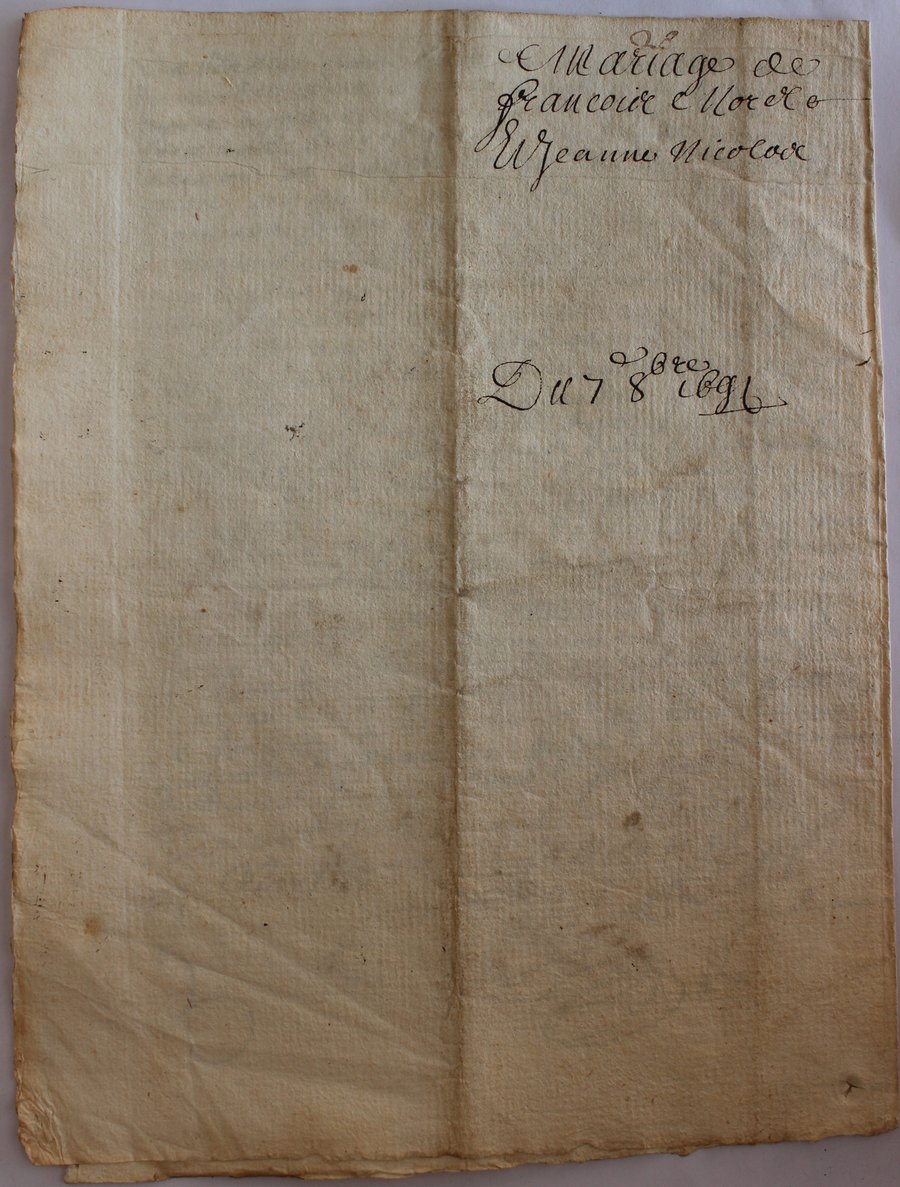 Mariage de
francois Morel
& Jeanne Nicolas
Du 7 8bre 1691